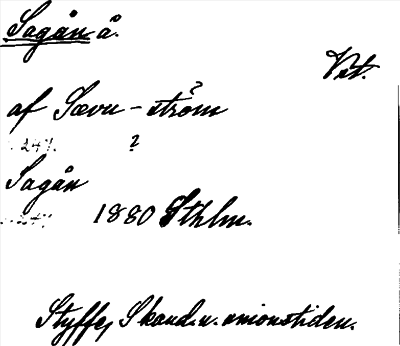 Sagån å.
Vst.
af Sævu - ström ?
?
Sagån
1880 Sthlm.
Styffe, Skand. u. unionstiden.